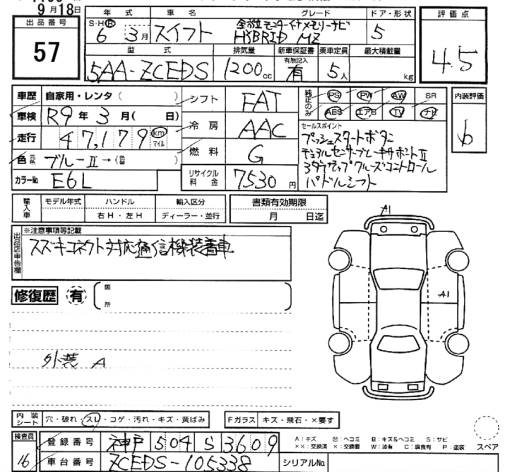 9月18日
出品番号
57
年式 車名 グレード ドア・形状
S・H・R 6年 3月 スイフト HYBRID MZ 5
型式 排気量 新車保証書 乗車定員 最大積載量
5AA-ZCEDS 1200cc 有 5人 kg
評価点
4.5
車歴 自家用・レンタ( )
車検 R9年 3月( 日)
走行 47,179 km マイル
色 ブルーII→( )
カラーNo E6L
シフト FAT
冷房 AAC
燃料 G
リサイクル料金 7530円
純正のみ PS PW SW SR
ABS エアB TV ナビ
内装評価
b
セールスポイント
プッシュスタートボタン
デュアルセンサーブレーキサポートII
アダプティブクルーズコントロール
パドルシフト
輸入車 モデル年式 ハンドル 輸入区分
年 右H・左H ディーラー・並行
書類有効期限
月 日迄
※注意事項等記載
出品店申告欄
スズキコネクト対応通信機装着車
修復歴 有
箇所
外装 A
A1
A1
内装シート 穴・破れ・スレ・コゲ・汚れ・キズ・黄ばみ
Fガラス キズ・飛石・×要す
検査員
16
登録番号 神戸 504 S 3609
車台番号 ZCEDS-105338
シリアルNo.
A:キズ U:ヘコミ B:キズ&ヘコミ S:サビ
××:交換済 ×:要交換 W:補修済 C:腐食有 P:塗装
スペア